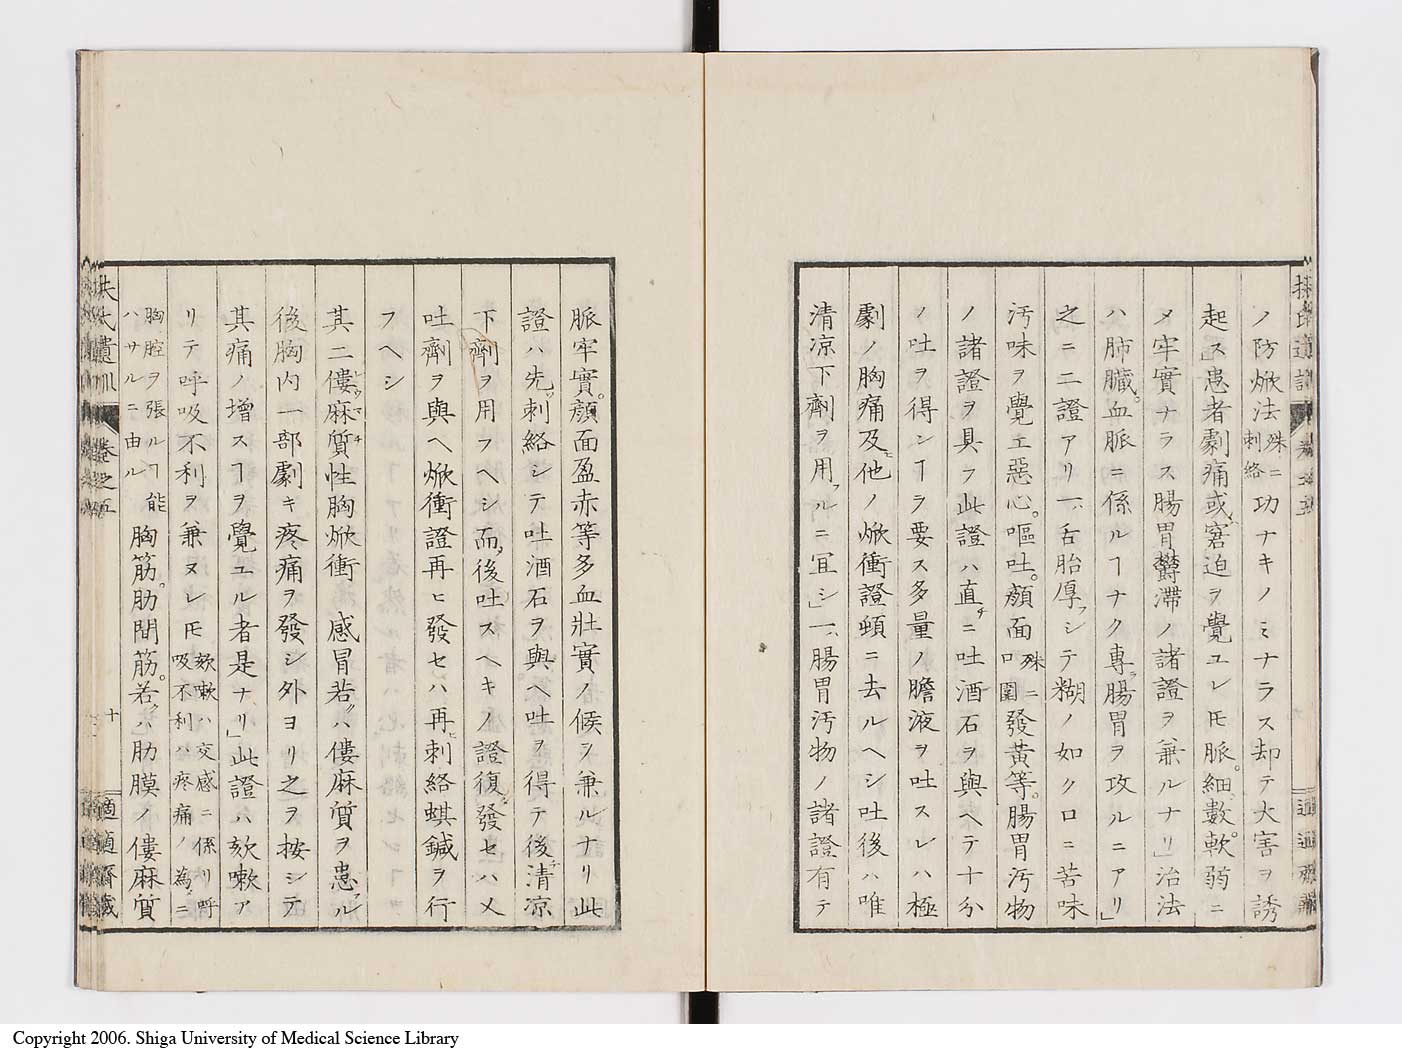 ノ防焮法殊ニ刺絡功ナキノミナラス却テ大害ヲ誘
起ス」患者劇痛或窘迫ヲ覺ユレ𪜈脈細。數。軟弱ニ
メ牢實ナラス腸胃欝滞ノ諸證ヲ兼ルナリ」治法
ハ肺臓。血脈ニ係ルヿナク專ラ腸胃ヲ攻ルニアリ」
之ニ二證アリ一、舌胎厚フシテ糊ノ如ク口ニ苦味
汚味ヲ覺エ惡心。嘔吐。顔面殊ニ口圍發黄等。腸胃汚物
ノ諸證ヲ具フ此證ハ直チニ吐酒石ヲ與ヘテ十分
ノ吐ヲ得ンヿヲ要ス多量ノ膽液ヲ吐スレハ極
劇ノ胸痛及ヒ他ノ焮衝證頓ニ去ルヘシ吐後ハ唯
清凉下劑ヲ用フルニ冝シ」一、腸胃汚物ノ諸證有テ
脈牢實。顔面盈赤等多血壯實ノ候ヲ兼ルナリ此
證ハ先ツ刺絡シテ吐酒石ヲ與ヘ吐ヲ得テ後チ清凉
下劑ヲ用フヘシ而ノ後吐スヘキノ證復タ發セハ又
吐劑ヲ與ヘ焮衝證再ヒ發セハ再ヒ刺絡蜞鍼ヲ行
フヘシ
其二僂麻質性胸焮衝 感冒若クハ僂麻質ヲ患フル
後胸内一部劇キ疼痛ヲ發シ外ヨリ之ヲ按シテ
其痛ノ増スヿヲ覺ユル者是ナリ」此證ハ欬嗽ア
リテ呼吸不利ヲ兼ヌレ𪜈欬嗽ハ交感ニ係リ呼吸不利ハ疼痛ノ為ニ
胸腔ヲ張ルヿ能ハサルニ由ル胸筋。肋間筋。若クハ肋膜ノ僂麻質
扶氏遺訓 巻之五 十 適適齋藏